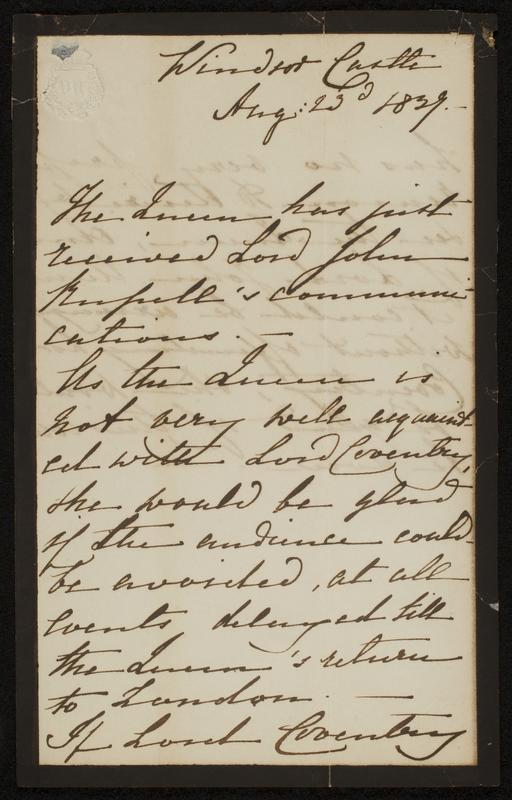 Windsor Castle
Aug: 23d 1839.—
The Queen has just
received Lord John
Russell's communi
cations. —
As the Queen is
not very well acquaint-
ed with Lord Coventry,
she would be glad
if the audience could
be avoided, at all
events delayed till
the Queen's return
to London. —
If Lord Coventry